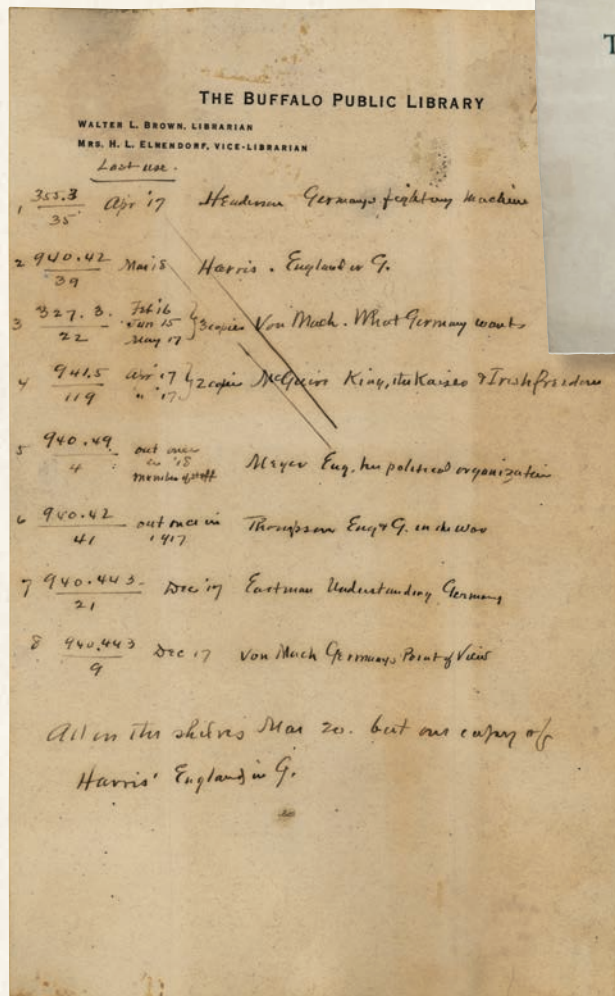 THE BUFFALO PUBLIC LIBRARY
WALTER L. BROWN, LIBRARIAN
MRS. H. L. ELMENDORF, VICE-LIBRARIAN
Last use.
1 355.3/35 Apr '17 Henderson Germany's fighting machine
2 940.42/39 Mar 18 Harris. England or G.
3 327.3./22 Feb 16 Jun 15 May 17 } 3 copies Von Mach. What Germany wants
4 941.5/119 Apr '17 " '17 } 2 copies McGuire King, the Kaiser & Irish freedom
5 940.49/4 out once in '18 member of staff Meyer Eng. her political organization
6 940.42/41 out once in 1917 Thompson Eng & G. in the war
7 940.443/21 Dec '17 Eastman Understanding Germany
8 940.443/9 Dec 17 Von Mach Germany's Point of View
All on the shelves Mar 20. but one copy of
Harris' England or G.
T